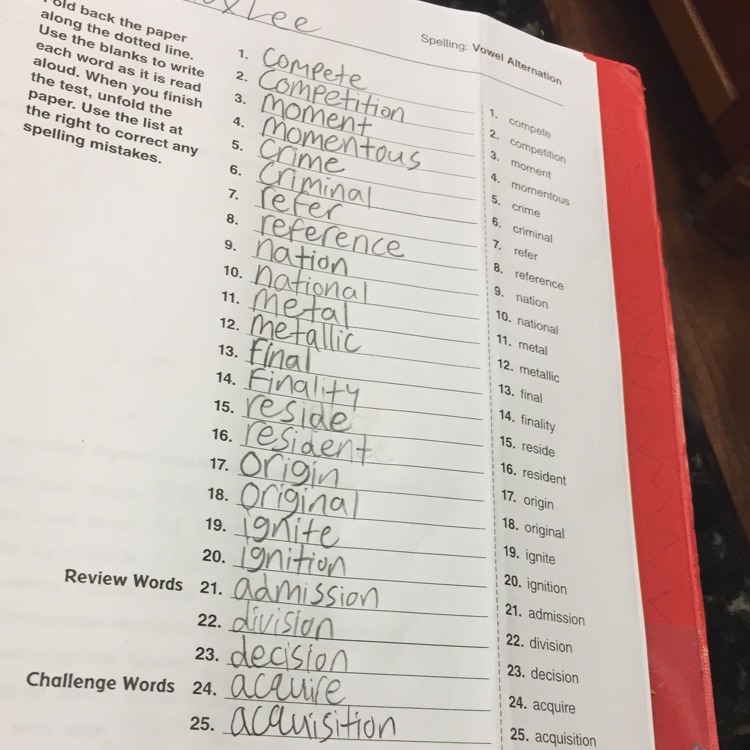 Lee
Spelling: Vowel Alternation
Fold back the paper
along the dotted line.
Use the blanks to write
each word as it is read
aloud. When you finish
the test, unfold the
paper. Use the list at
the right to correct any
spelling mistakes.
1. Compete
2. Competition
3. moment
4. momentous
5. Crime
6. Criminal
7. refer
8. reference
9. nation
10. national
11. metal
12. metallic
13. final
14. Finality
15. reside
16. resident
17. Origin
18. Original
19. ignite
20. ignition
Review Words 21. admission
22. division
23. decision
Challenge Words 24. acquire
25. acquisition
1. compete
2. competition
3. moment
4. momentous
5. crime
6. criminal
7. refer
8. reference
9. nation
10. national
11. metal
12. metallic
13. final
14. finality
15. reside
16. resident
17. origin
18. original
19. ignite
20. ignition
21. admission
22. division
23. decision
24. acquire
25. acquisition